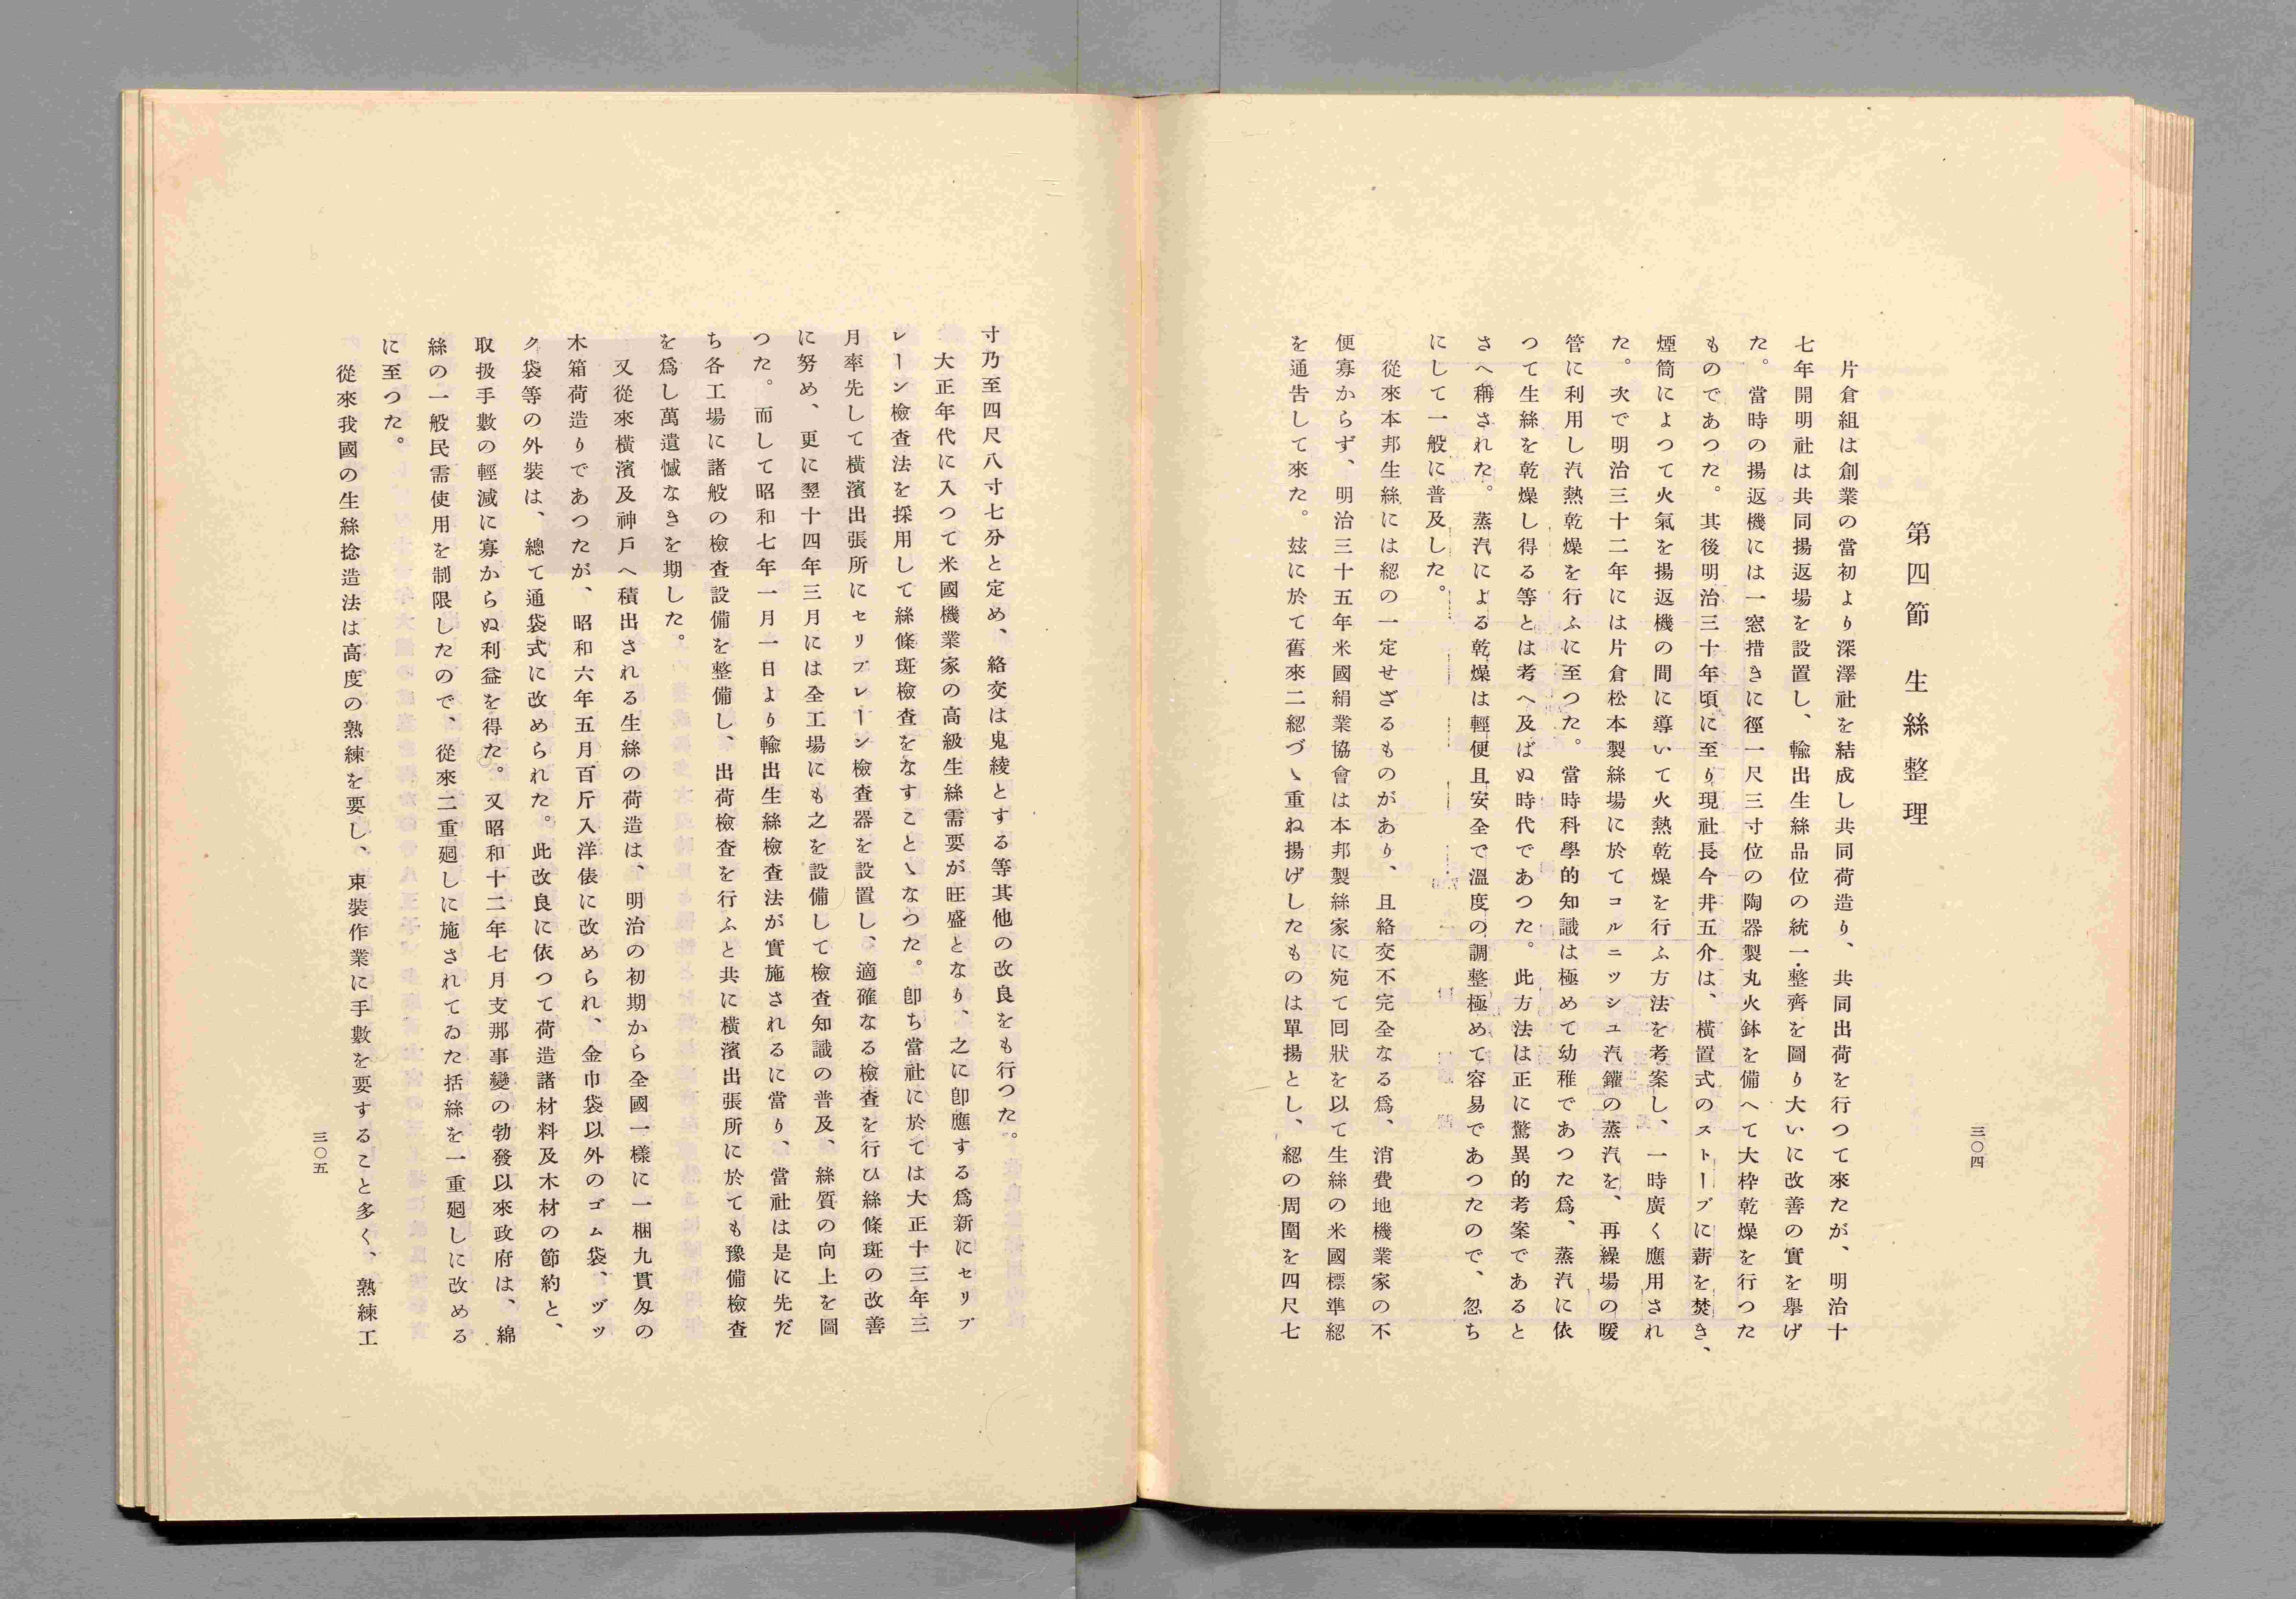 第四節　生絲整理
片倉組は創業の當初より深澤社を結成し共同荷造り、共同出荷を行つて來たが、明治十
七年開明社は共同揚返場を設置し、輸出生絲品位の統一・整齊を圖り大いに改善の實を擧げ
た。當時の揚返機には一窓措きに徑一尺三寸位の陶器製丸火鉢を備へて大枠乾燥を行つた
ものであつた。其後明治三十年頃に至り現社長今井五介は、横置式のストーブに薪を焚き、
煙筒によつて火氣を揚返機の間に導いて火熱乾燥を行ふ方法を考案し、一時廣く應用され
た。次で明治三十二年には片倉松本製絲場に於てコルニッシュ汽鑵の蒸汽を、再繰場の暖
管に利用し汽熱乾燥を行ふに至つた。當時科學的知識は極めて幼稚であつた爲、蒸汽に依
つて生絲を乾燥し得る等とは考へ及ばぬ時代であつた。此方法は正に驚異的考案であると
さへ稱された。蒸汽による乾燥は輕便且安全で溫度の調整極めて容易であつたので、忽ち
にして一般に普及した。
從來本邦生絲には綛の一定せざるものがあり、且絡交不完全なる爲、消費地機業家の不
便寡からず、明治三十五年米國絹業協會は本邦製絲家に宛て回狀を以て生絲の米國標準綛
を通告して來た。玆に於て舊來二綛づゝ重ね揚げしたものは單揚とし、綛の周圍を四尺七
三〇四
寸乃至四尺八寸七分と定め、絡交は鬼綾とする等其他の改良をも行つた。
大正年代に入つて米國機業家の高級生絲需要が旺盛となり、之に卽應する爲新にセリプ
レーン檢査法を採用して絲條斑檢査をなすことゝなつた。卽ち當社に於ては大正十三年三
月率先して横濱出張所にセリプレーン檢査器を設置し、適確なる檢査を行ひ絲條斑の改善
に努め、更に翌十四年三月には全工場にも之を設備して檢査知識の普及、絲質の向上を圖
つた。而して昭和七年一月一日より輸出生絲檢査法が實施されるに當り、當社は是に先だ
ち各工場に諸般の檢査設備を整備し、出荷檢査を行ふと共に横濱出張所に於ても豫備檢査
を爲し萬遺憾なきを期した。
又從來横濱及神戶へ積出される生絲の荷造は、明治の初期から全國一樣に一梱九貫匁の
木箱荷造りであつたが、昭和六年五月百斤入洋俵に改められ、金巾袋以外のゴム袋、ヅッ
ク袋等の外裝は、總て通袋式に改められた。此改良に依つて荷造諸材料及木材の節約と、
取扱手數の輕減に寡からぬ利益を得た。又昭和十二年七月支那事變の勃發以來政府は、綿
絲の一般民需使用を制限したので、從來二重廻しに施されてゐた括絲を一重廻しに改める
に至つた。
從來我國の生絲捻造法は高度の熟練を要し、束裝作業に手數を要すること多く、熟練工
三〇五